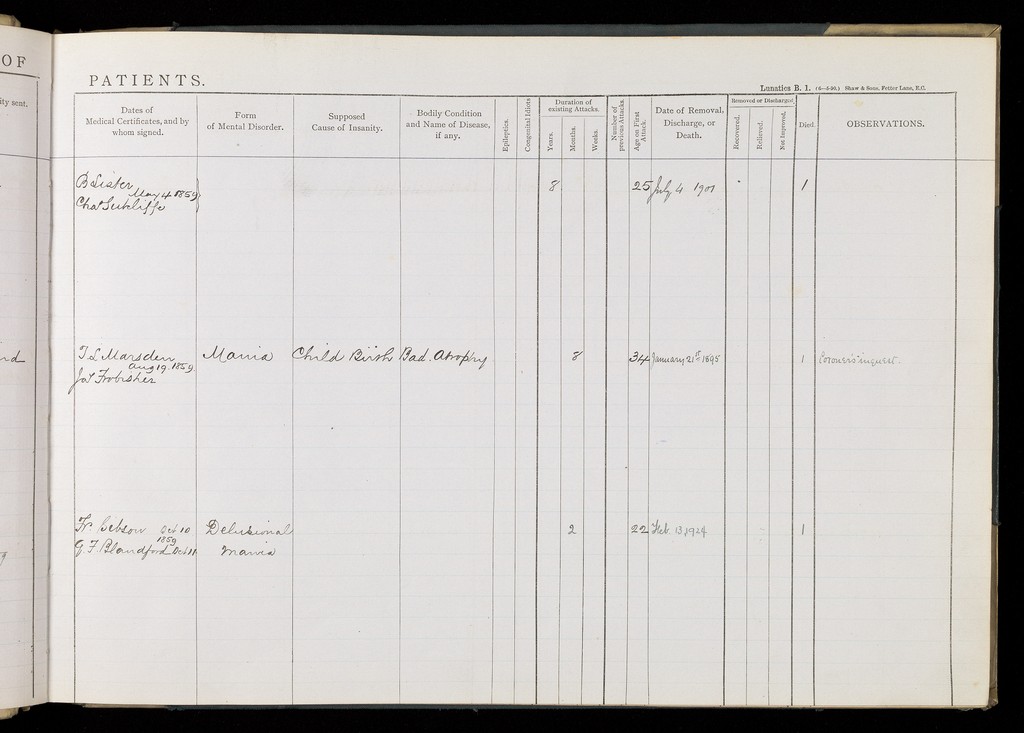 OF
ity sent.
PATIENTS.
Lunatics B. 1. (6—5-90.) Shaw & Sons, Fetter Lane, E.C.
Dates of
Medical Certificates, and by
whom signed.
Form
of Mental Disorder.
Supposed
Cause of Insanity.
Bodily Condition
and Name of Disease,
if any.
Epileptics.
Congenital Idiots
Duration of
existing Attacks.
Years.
Months.
Weeks.
Number of
previous Attacks.
Age on First
Attack.
Date of Removal.
Discharge, or
Death.
Removed or Discharged.
Recovered.
Relieved.
Not Improved.
Died.
OBSERVATIONS.
B Lister
May 4 1859
Chas Sutcliffe
8 25 July 4 1901 1
T L Marsden Mania Child Birth Bad. Atrophy 8 34 January 21st 1895 1 Coroners inquest.
Aug 19. 1859
Jas Frobisher
Oct 10 Delusional 2 22 Feb. 13, 1924 1
1859
G. F. Blandford Oct 11 mania